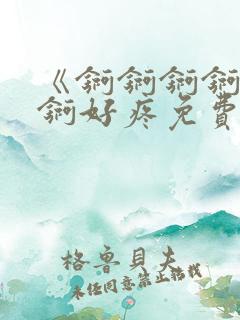 《锕锕锕锕
锕好疼免费
格鲁贝夫
未经同意禁止转载